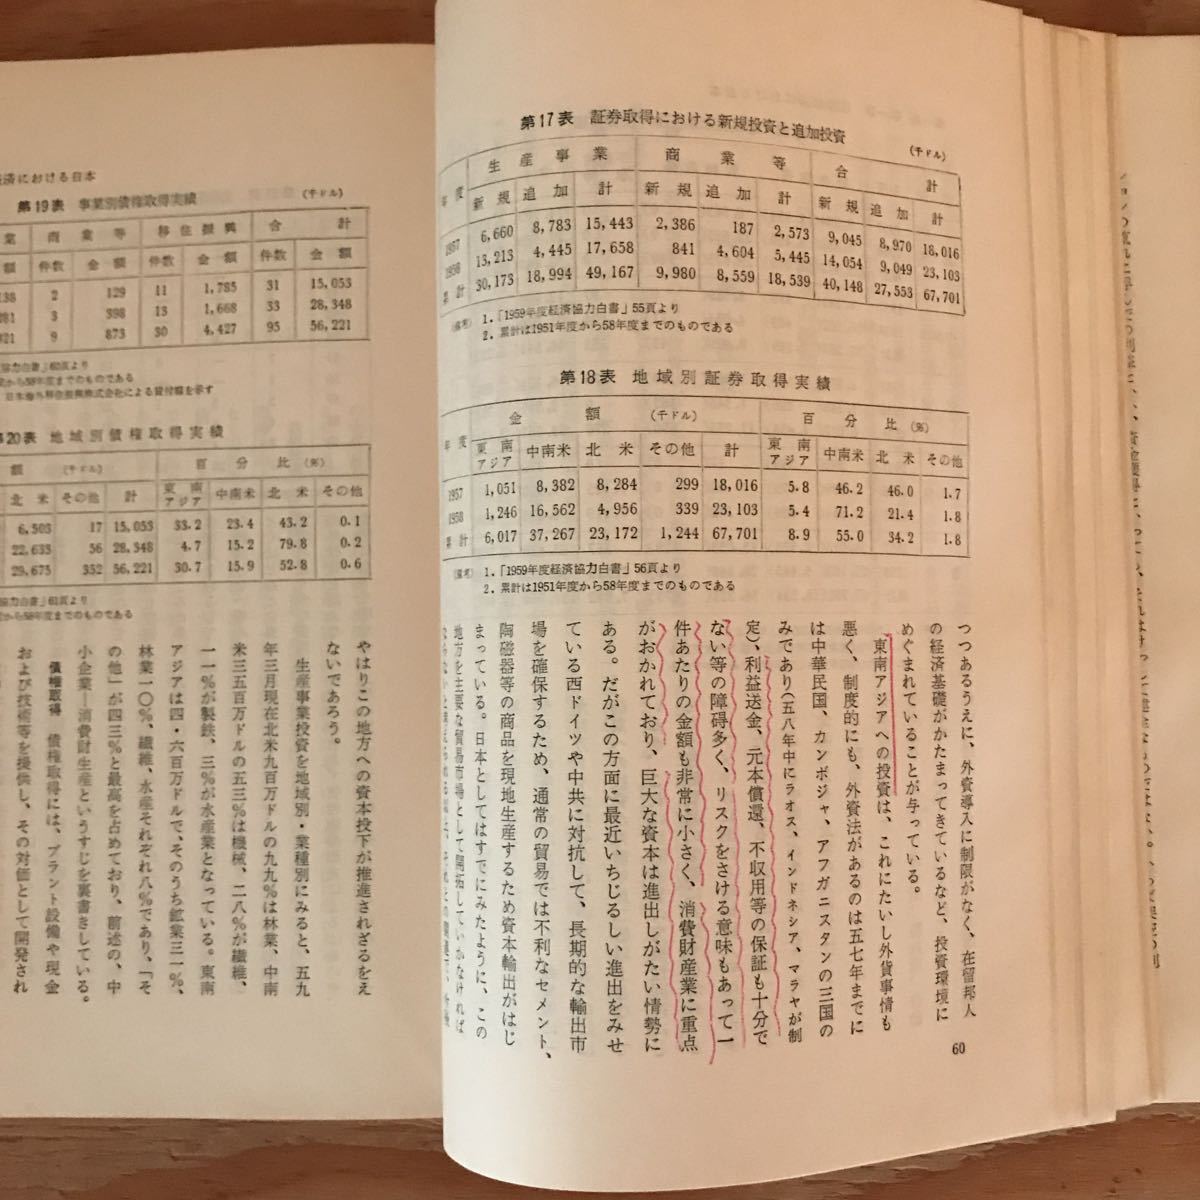 第17表 証券取得における新規投資と追加投資
(千ドル)
年度 生産事業 商業等 合計
新規 追加 計 新規 追加 計 新規 追加 計
1957 6,660 8,783 15,443 2,386 187 2,573 9,045 8,970 18,016
1958 13,213 4,445 17,658 841 4,604 5,445 14,054 9,049 23,103
累計 30,173 18,994 49,167 9,980 8,559 18,539 40,148 27,553 67,701
(備考) 1.「1959年度経済協力白書」55頁より
2.累計は1951年度から58年度までのものである
第18表 地域別証券取得実績
年度 金額 (千ドル) 百分比 (%)
東南アジア 中南米 北米 その他 計 東南アジア 中南米 北米 その他
1957 1,051 8,382 8,284 299 18,016 5.8 46.2 46.0 1.7
1958 1,246 16,562 4,956 339 23,103 5.4 71.2 21.4 1.8
累計 6,017 37,267 23,172 1,244 67,701 8.9 55.0 34.2 1.8
(備考) 1.「1959年度経済協力白書」56頁より
2.累計は1951年度から58年度までのものである
つつあるうえに、外資導入に制限がなく、在留邦人
の経済基礎がかたまってきているなど、投資環境に
めぐまれていることが与っている。
東南アジアへの投資は、これにたいし外貨事情も
悪く、制度的にも、外資法があるのは五七年までに
は中華民国、カンボジャ、アフガニスタンの三国の
みであり(五八年中にラオス、インドネシア、マラヤが制
定)、利益送金、元本償還、不収用等の保証も十分で
ない等の障碍多く、リスクをさける意味もあって一
件あたりの金額も非常に小さく、消費財産業に重点
がおかれており、巨大な資本は進出しがたい情勢に
ある。だがこの方面に最近いちじるしい進出をみせ
ている西ドイツや中共に対抗して、長期的な輸出市
場を確保するため、通常の貿易では不利なセメント、
陶磁器等の商品を現地生産するため資本輸出がはじ
まっている。日本としてはすでにみたように、この
地方を主要な貿易市場として開拓していかなければ
60
済における日本
第19表 事業別債権取得実績
(千ドル)
業 商業等 移住振興 合計
額 件数 金額 件数 金額 件数 金額
138 2 129 11 1,785 31 15,053
281 3 398 13 1,668 33 28,348
921 9 873 30 4,427 95 56,221
協力白書」60頁より
度から58年度までのものである
日本海外移住振興株式会社による貸付額を示す
第20表 地域別債権取得実績
額 (千ドル) 百分比 (%)
北米 その他 計 東南アジア 中南米 北米 その他
6,503 17 15,053 33.2 23.4 43.2 0.1
22,633 56 28,348 4.7 15.2 79.8 0.2
29,675 352 56,221 30.7 15.9 52.8 0.6
協力白書」61頁より
度から58年度までのものである
やはりこの地方への資本投下が推進されざるをえ
ないであろう。
生産事業投資を地域別・業種別にみると、五九
年三月現在北米九百万ドルの九九%は林業、中南
米三五百万ドルの五三%は機械、二八%が繊維、
一一%が製鉄、三%が水産業となっている。東南
アジアは四・六百万ドルで、そのうち鉱業三一%、
林業一〇%、繊維、水産それぞれ八%であり、「そ
の他」が四三%と最高を占めており、前述の、中
小企業―消費財生産というすじを裏書きしている。
債権取得 債権取得には、プラント設備や現金
および技術等を提供し、その対価として開発され